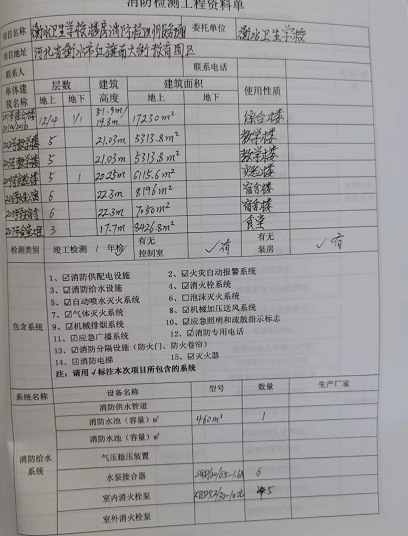 消防检测工程资料单
项目名称 衡水卫生学校楼房消防检测 委托单位 衡水卫生学校
项目地址 河北省衡水市红旗大街教育园区
联系人 联系电话
单体建筑名称 层数 建筑高度 建筑面积 使用性质
地上 地下 地上 地下
12/4 1/1 51.9m/19.8m 17230m² 综合楼
教学楼 5 21.03m 5313.8m² 教学楼
教学楼 5 21.03m 5313.8m² 教学楼
5 1 20.25m 6115.6m² 实验楼
6 22.3m 8196m² 宿舍楼
6 22.3m 7050m² 宿舍楼
3 17.7m 8426.8m² 食堂
检测类别 竣工检测 / 年检 有无控制室 √有 有无泵房 √有
包含系统
1、☑消防供配电设施 2、☑火灾自动报警系统
3、☑消防给水设施 4、☑消火栓系统
5、☑自动喷水灭火系统 6、☐泡沫灭火系统
7、☑气体灭火系统 8、☑机械加压送风系统
9、☑机械排烟系统 10、☑应急照明和疏散指示标志
11、☑应急广播系统 12、☑消防专用电话
13、☑消防分隔设施（防火门、防火卷帘）
14、☑消防电梯 15、☑灭火器
注：请用√标注本次项目所包含的系统
系统名称 设备名称 型号 数量 生产厂家
消防给水系统
消防供水管道
消防水池（容量）m³ 460m³ 1
消防水池（容量）m³
气压稳压装置
水泵接合器 6
室内消火栓泵 5
室外消火栓泵